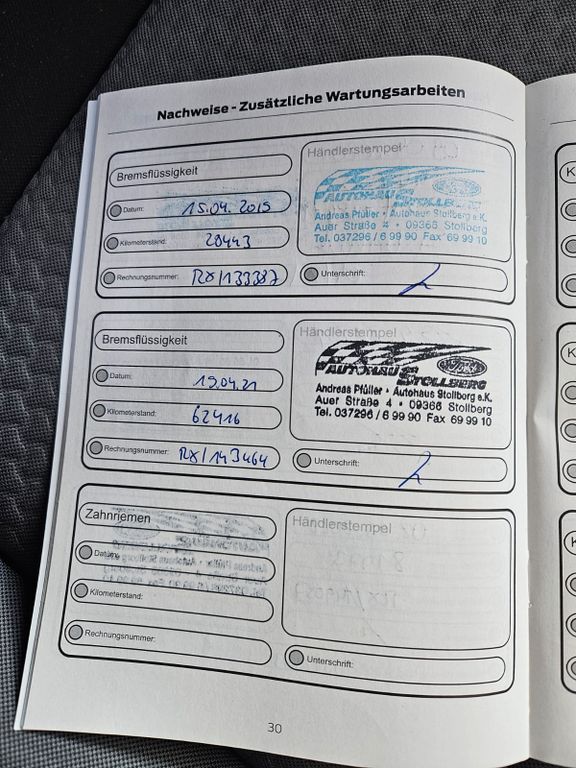 Nachweise - Zusätzliche Wartungsarbeiten
Bremsflüssigkeit
Datum: 15.04.2019
Kilometerstand: 20443
Rechnungsnummer: RX/133387
Händlerstempel
AUTOHAUS STOLLBERG
Andreas Pfüller • Autohaus Stollberg e.K.
Auer Straße 4 • 09366 Stollberg
Tel. 037296 / 6 99 90 Fax 69 99 10
Unterschrift:
Bremsflüssigkeit
Datum: 19.04.21
Kilometerstand: 62416
Rechnungsnummer: RX/143464
Händlerstempel
AUTOHAUS STOLLBERG
Andreas Pfüller • Autohaus Stollberg e.K.
Auer Straße 4 • 09366 Stollberg
Tel. 037296 / 6 99 90 Fax 69 99 10
Unterschrift:
Zahnriemen
Datum:
Kilometerstand:
Rechnungsnummer:
Händlerstempel
Unterschrift:
30
K
K
K